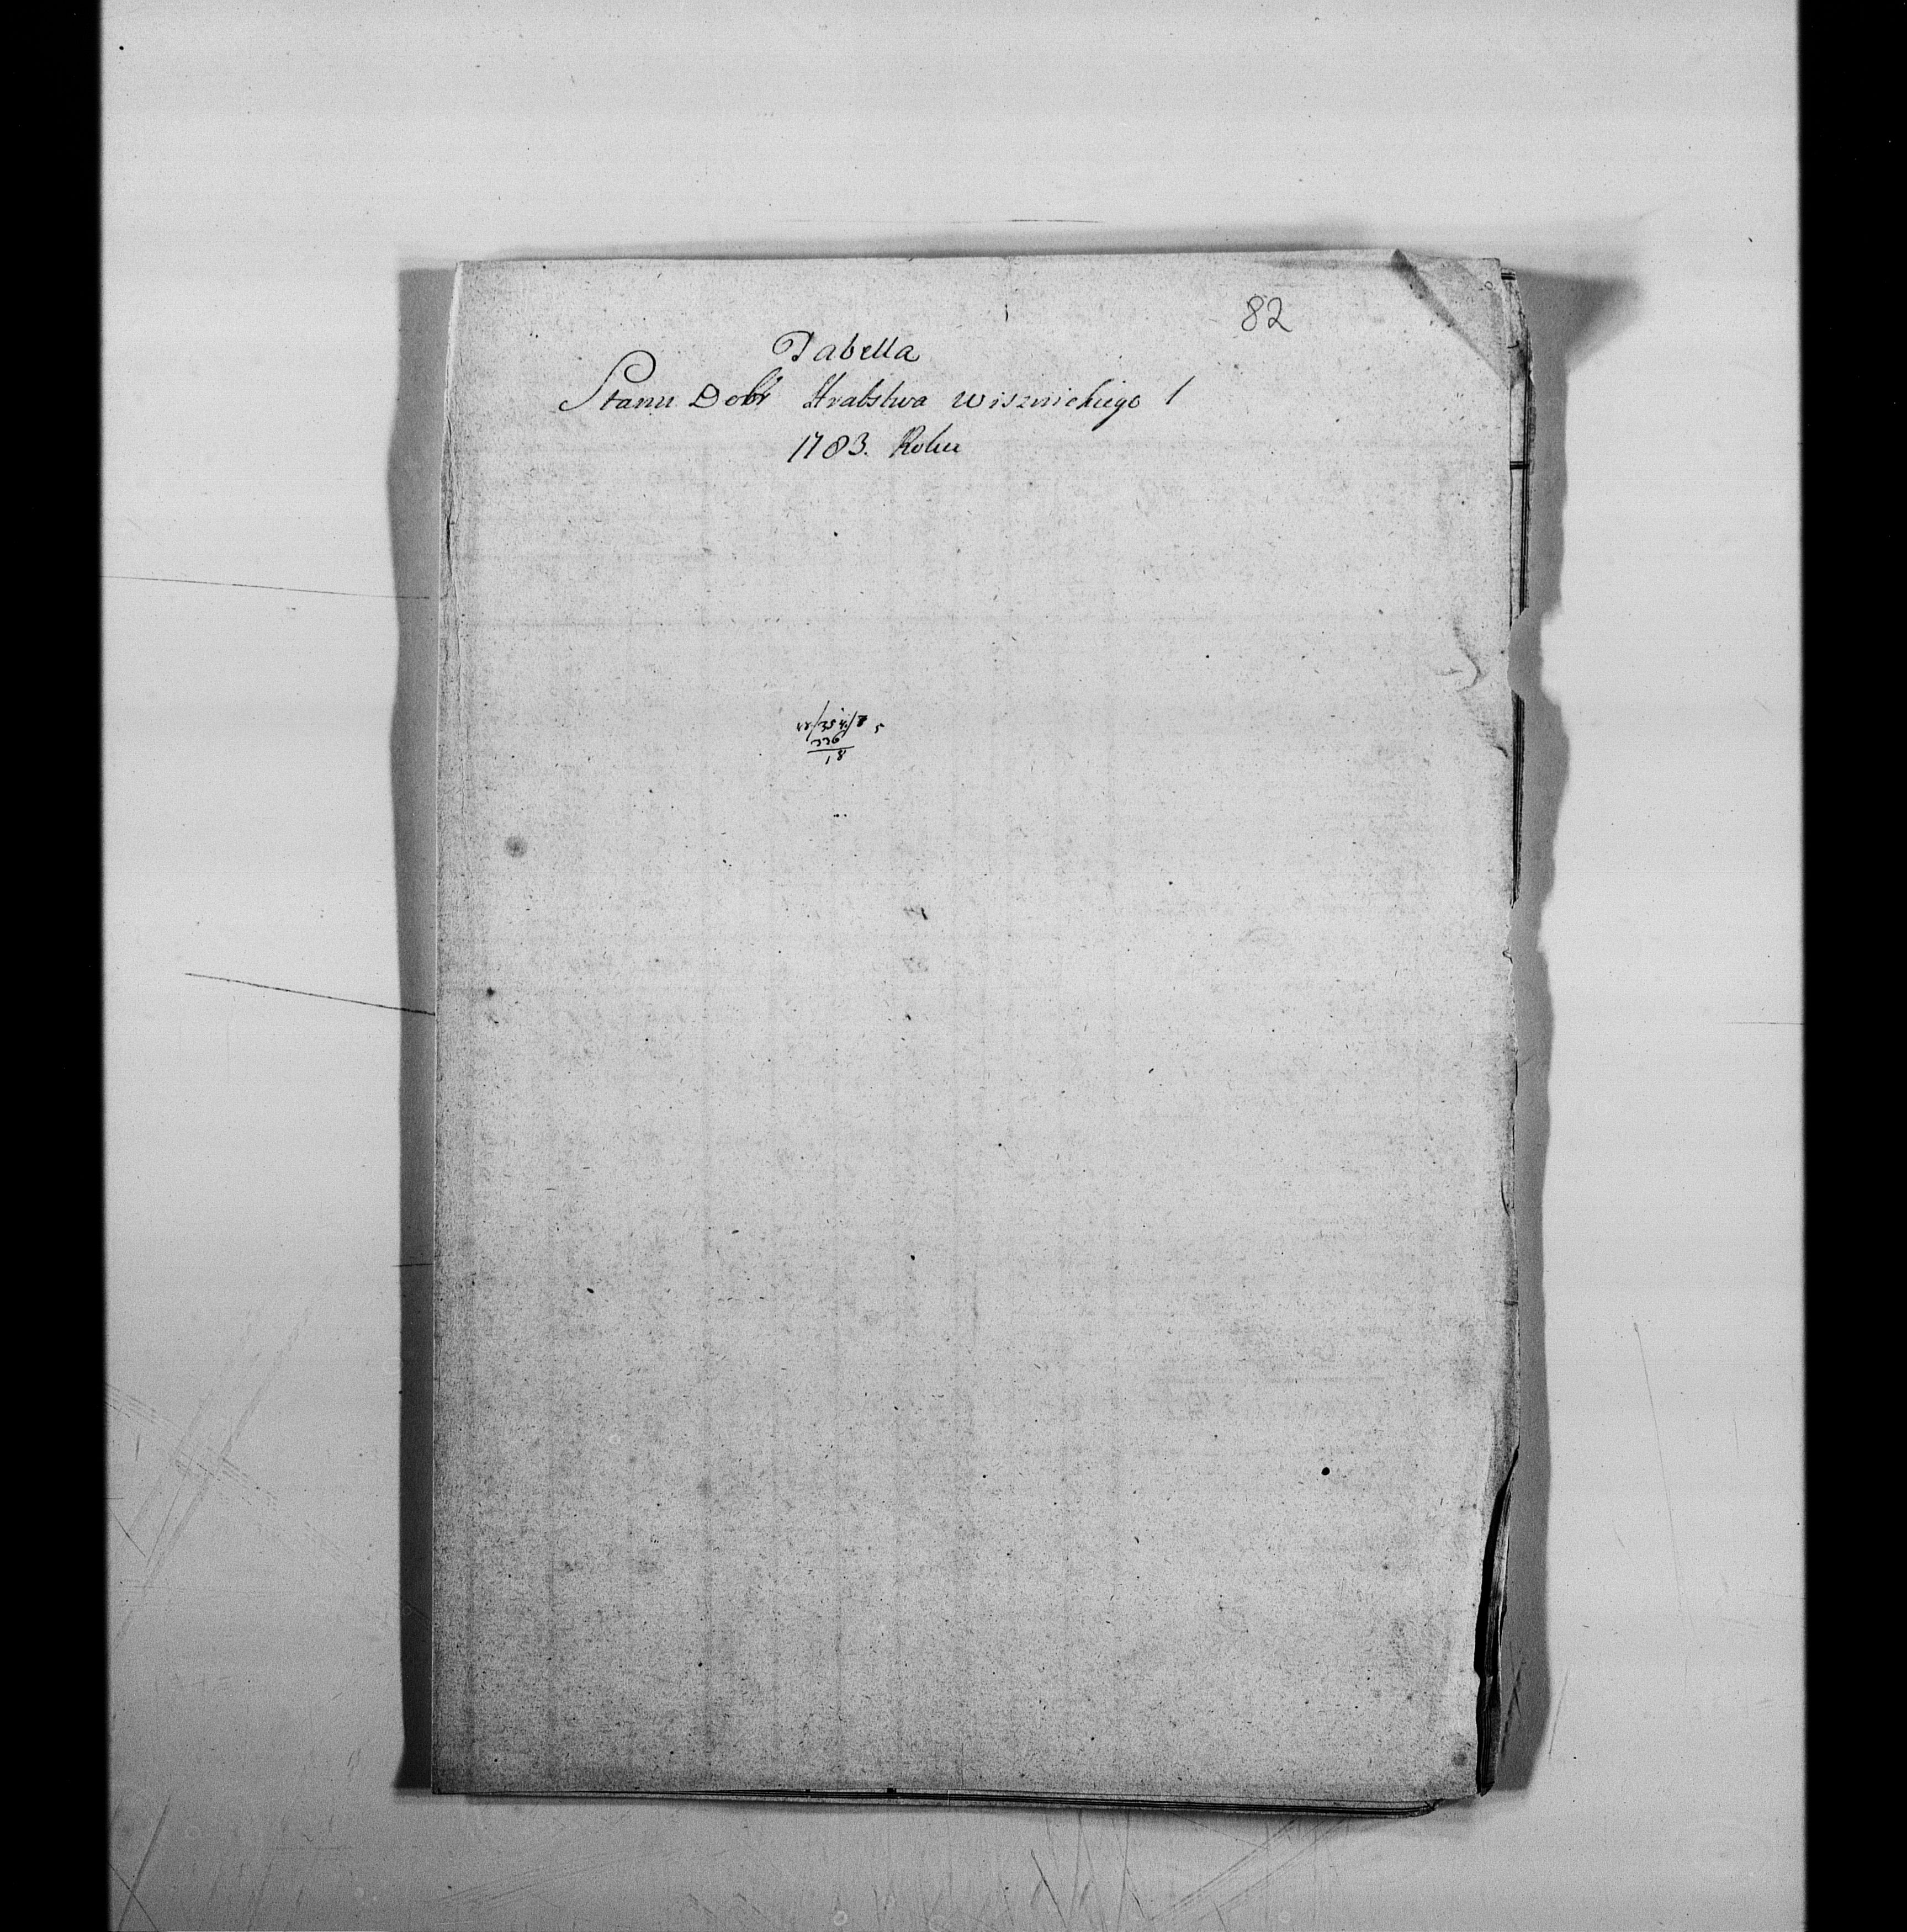 82
Tabella
Stanu Dobr Hrabstwa Wisznickiego
1783. Roku